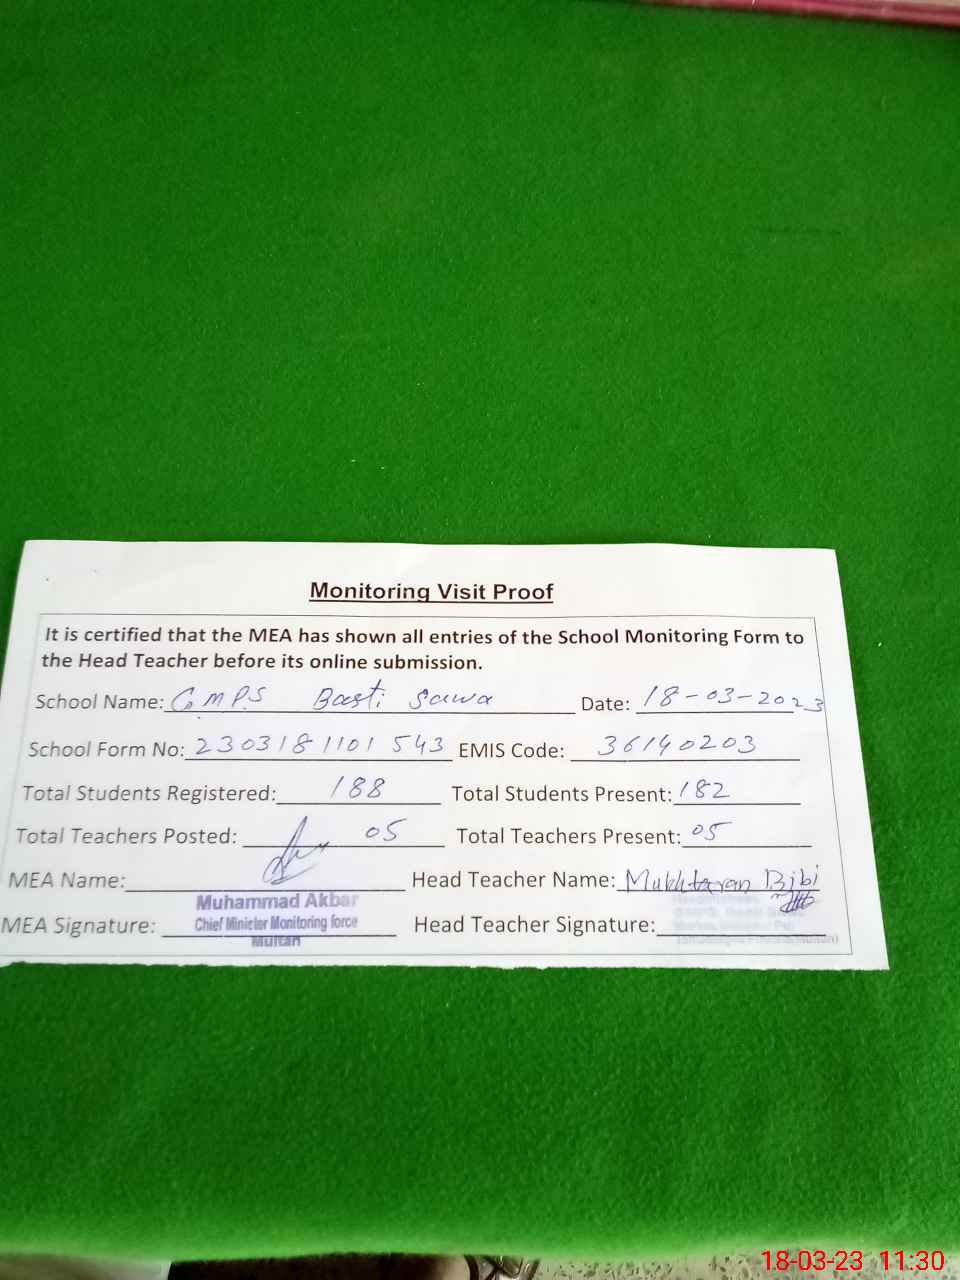 Monitoring Visit Proof
It is certified that the MEA has shown all entries of the School Monitoring Form to
the Head Teacher before its online submission.
School Name: GMPS Basti Sawa Date: 18-03-2023
School Form No: 2303181101543 EMIS Code: 36140203
Total Students Registered: 188 Total Students Present: 182
Total Teachers Posted: 05 Total Teachers Present: 05
MEA Name: Head Teacher Name: Mukhtaran Bibi
Muhammad Akbar
MEA Signature: Chief Minister Monitoring force Head Teacher Signature:
Multan
18-03-23 11:30